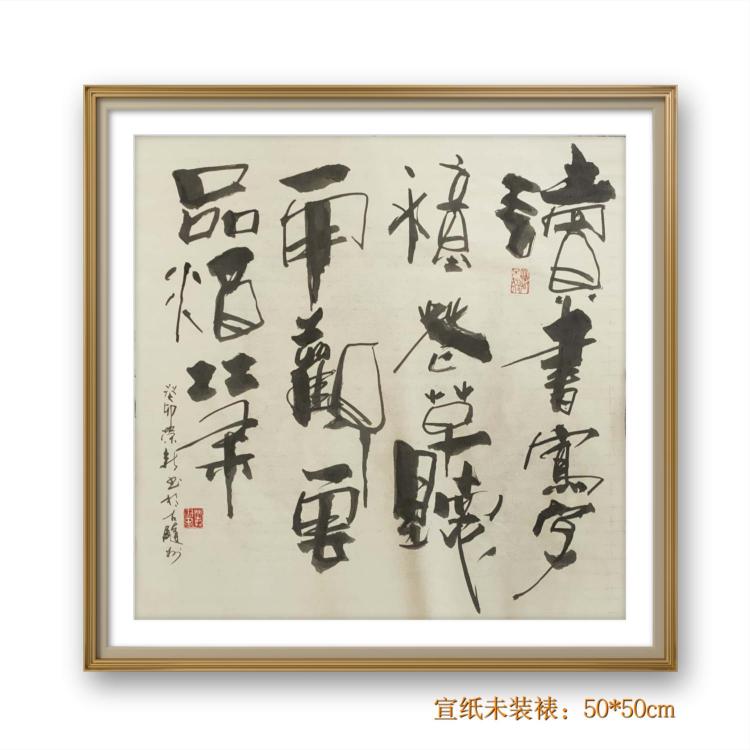 讀書寫字
種花草聽
雨觀雲
品酒茶
癸卯榮新书於古隨州
宣纸未装裱：50*50cm